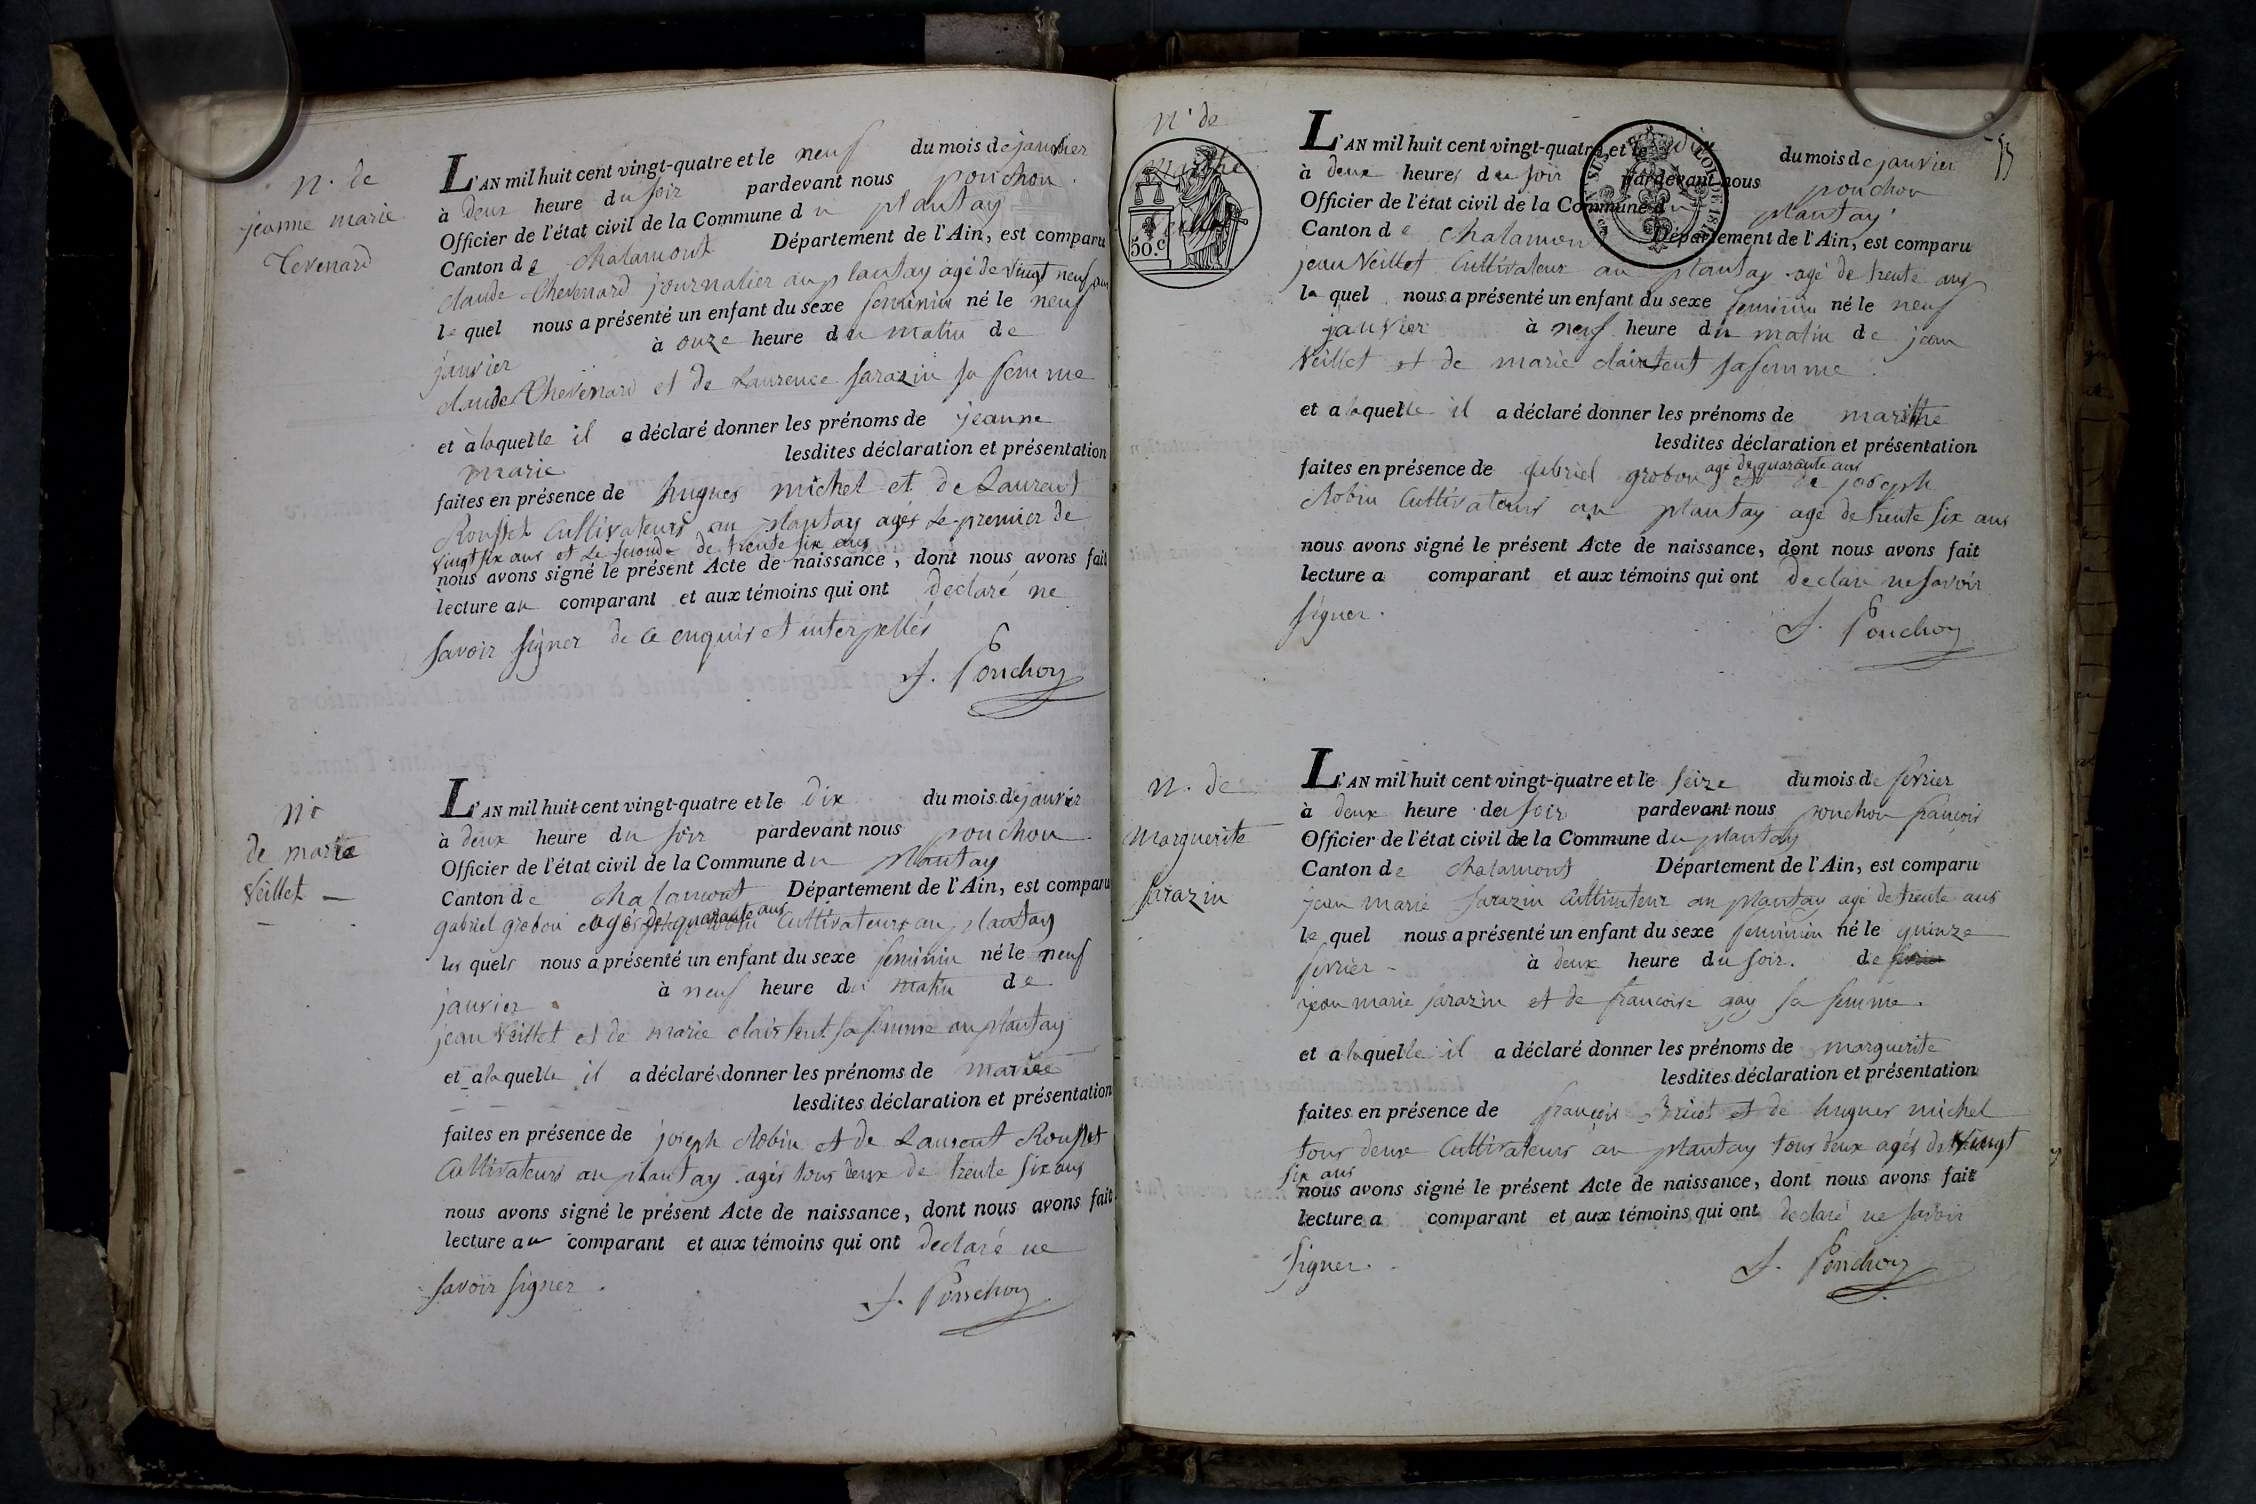 N. de
jeanne marie
Tevenard
L'AN mil huit cent vingt-quatre et le neuf du mois de janvier
à deux heure du soir pardevant nous pouchon
Officier de l'état civil de la Commune du plantay
Canton de chalamont Département de l'Ain, est comparu
claude thevenard journalier au plantay agé de vingt neuf ans
le quel nous a présenté un enfant du sexe feminin né le neuf
janvier à onze heure du matin de
claude thevenard et de Laurence sarazin sa femme
et à laquelle il a déclaré donner les prénoms de jeanne
marie lesdites déclaration et présentation
faites en présence de hugues michel et de Laurent
Rousset Cultivateurs au plantay agés le premier de
vingt six ans et le seconde de trente six ans
nous avons signé le présent Acte de naissance, dont nous avons fait
lecture au comparant et aux témoins qui ont declaré ne
savoir signer de ce enquis et interpellés
f. Pouchon
N°
de marie
Veillet
L'AN mil huit cent vingt-quatre et le dix du mois de janvier
à deux heure du soir pardevant nous pouchon
Officier de l'état civil de la Commune du plantay
Canton de chalamont Département de l'Ain, est comparu
gabriel grobon agé de quarante ans Cultivateurs au plantay
les quels nous a présenté un enfant du sexe feminin né le neuf
janvier à neuf heure du matin de
jean Veillet et de marie clairtent sa femme au plantay
et a laquelle il a déclaré donner les prénoms de
lesdites déclaration et présentation
faites en présence de joseph Robin et de Laurent Rousset
Cultivateurs au plantay agés tous deux de trente six ans
nous avons signé le présent Acte de naissance, dont nous avons fait
lecture au comparant et aux témoins qui ont declaré ne
savoir signer.
f. Pouchon
N° de
L'AN mil huit cent vingt-quatre et le dix du mois de janvier
à deux heures du soir pardevant nous pouchon
Officier de l'état civil de la Commune du plantay
Canton de chalamont Département de l'Ain, est comparu
jean Veillet Cultivateur au plantay agé de trente ans
le quel nous a présenté un enfant du sexe feminin né le neuf
janvier à neuf heure du matin de jean
Veillet et de marie clairtent sa femme.
et a laquelle il a déclaré donner les prénoms de
lesdites déclaration et présentation
faites en présence de gabriel grobon agé de quarante ans et de joseph
Robin Cultivateurs au plantay agé de trente six ans
nous avons signé le présent Acte de naissance, dont nous avons fait
lecture a comparant et aux témoins qui ont declaré ne savoir
signer.
f. Pouchon
50. c.
N. de
Marguerite
Sarazin
L'AN mil huit cent vingt-quatre et le seize du mois de fevrier
à deux heure du soir pardevant nous pouchon françois
Officier de l'état civil de la Commune du plantay
Canton de chalamont Département de l'Ain, est comparu
jean marie sarazin Cultivateur au plantay agé de trente ans
le quel nous a présenté un enfant du sexe feminin né le quinze
fevrier - à deux heure du soir. de
jean marie sarazin et de francoise gay sa femme.
et a laquelle il a déclaré donner les prénoms de marguerite
lesdites déclaration et présentation
faites en présence de françois et de hugues michel
tous deux Cultivateurs au plantay tous deux agés de vingt
six ans
nous avons signé le présent Acte de naissance, dont nous avons fait
lecture a comparant et aux témoins qui ont declaré ne savoir
signer.
f. Pouchon